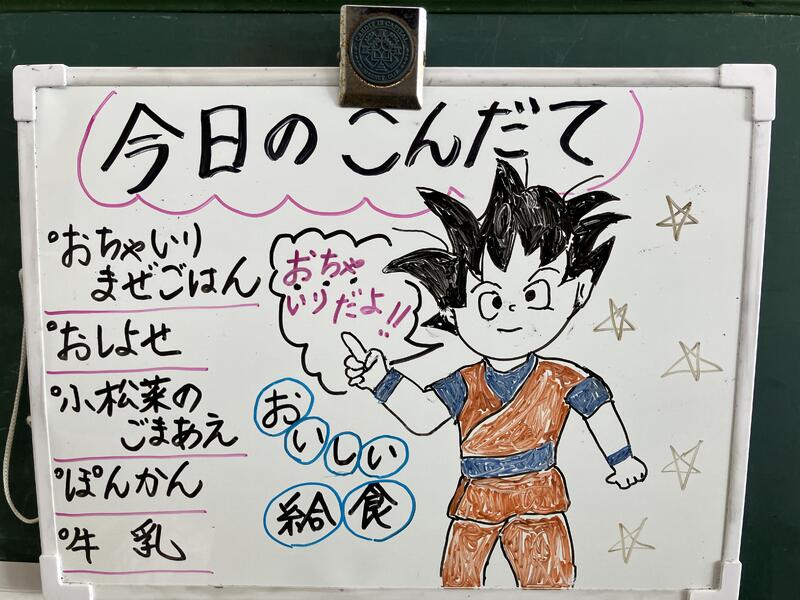 今日のこんだて
おちゃいり
まぜごはん
おしよせ
小松菜の
ごまあえ
ぽんかん
牛乳
おちゃ
いりだよ!!
おいしい
給食